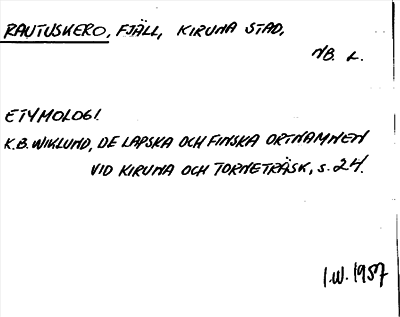 RAUTUSKERO, FJÄLL, KIRUNA STAD,
NB. L.
ETYMOLOGI.
K.B. WIKLUND, DE LAPSKA OCH FINSKA ORTNAMNEN
VID KIRUNA OCH TORNETRÄSK, s. 24.
I.W. 1957